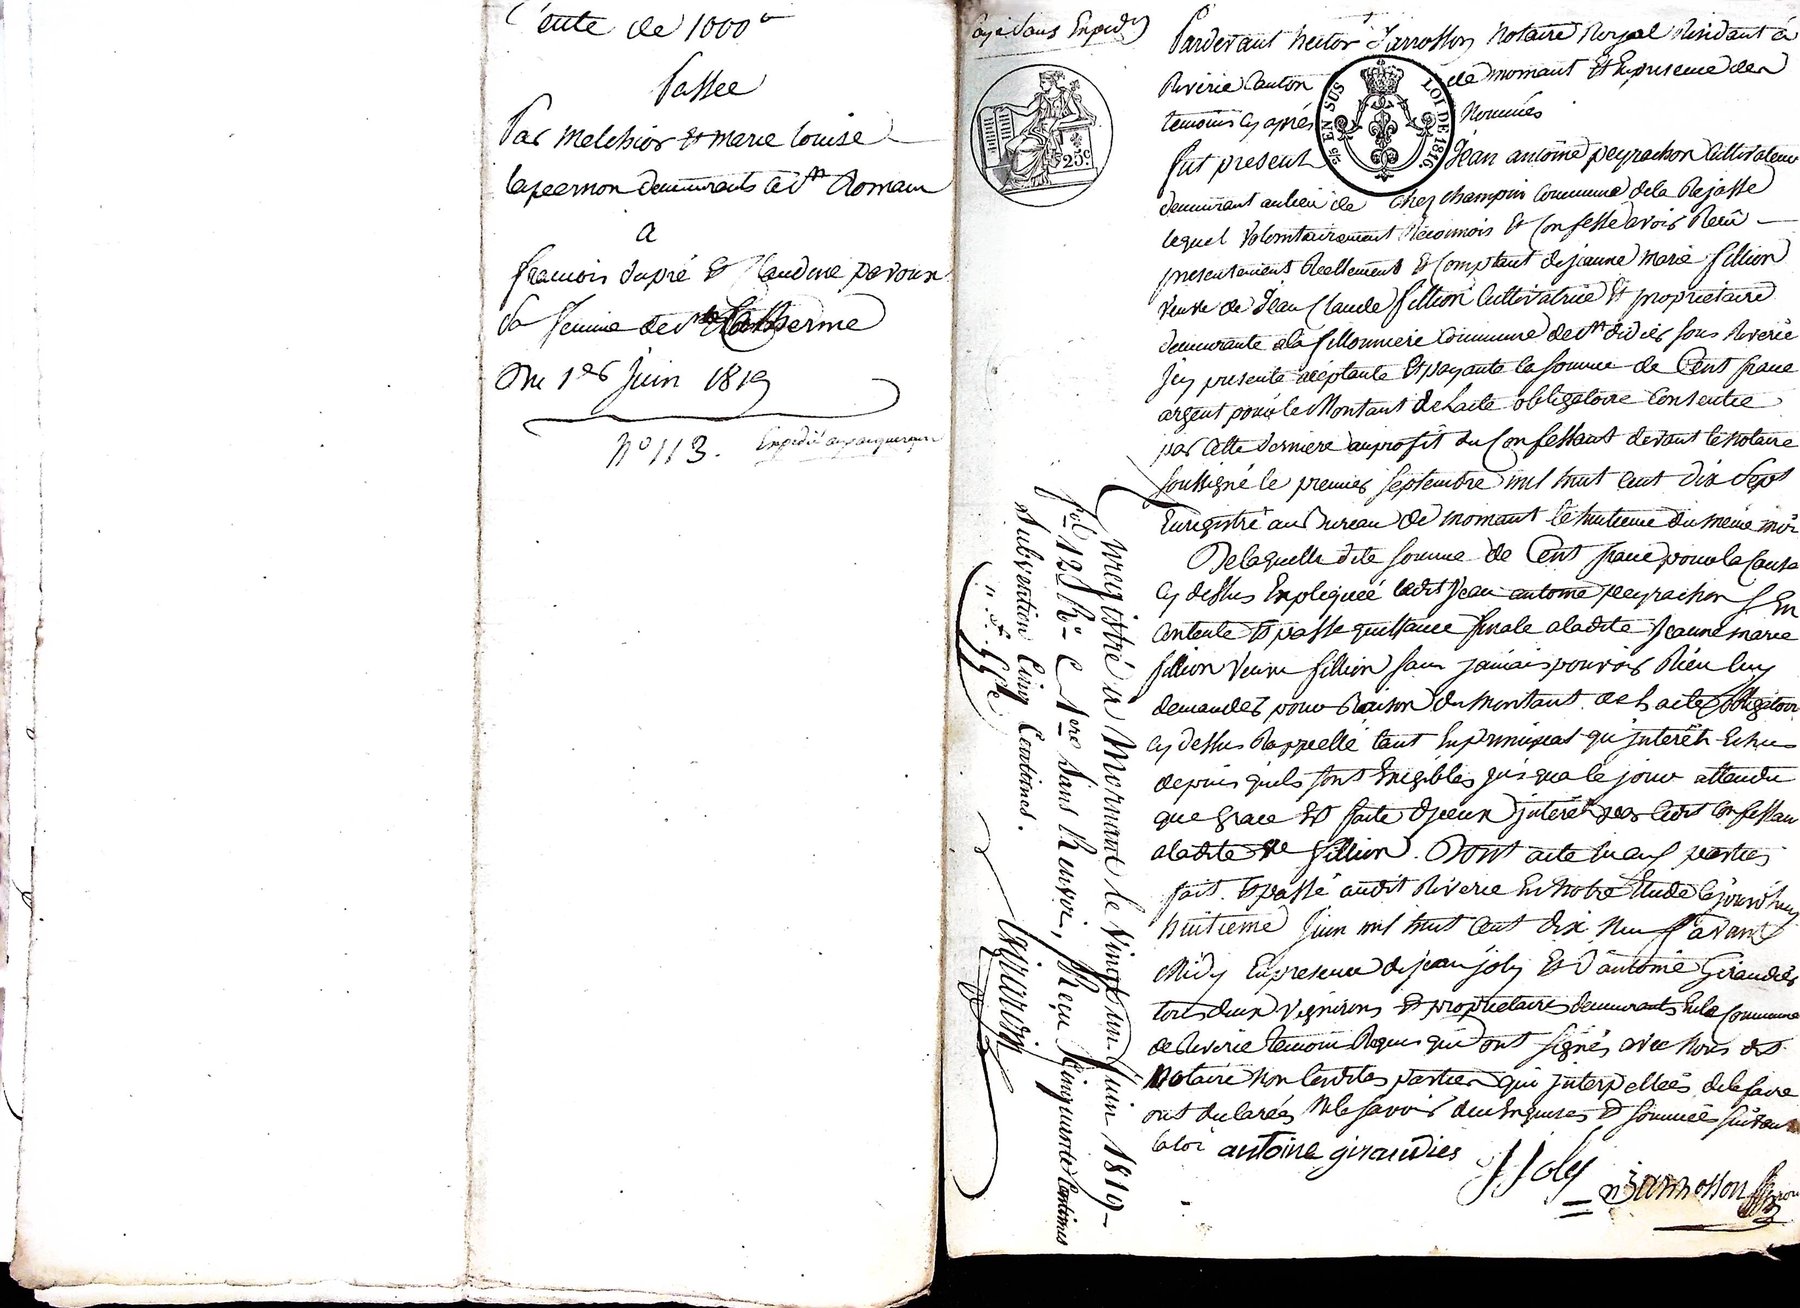 Vente de 1000 fr
Passée
Par melchior et marie louise
demeurants à St Romain
a
francois dupré et Claudine
sa femme de Ste Catherine
Du 1er Juin 1819
N° 113. Expédié
Payé Sans Expedon
25c
25c EN SUS LOI DE 1816
Pardevant hector Jarrosson Notaire Royal Résidant à
Riverie Canton de mornant Et Enpresence des
temoins cy après Nommés
fut present Jean antoine peyrachon Cultivateur
demeurant au lieu de chez champin commune dela Rajasse
lequel Volontairement Reconnois et Confesse avoir Recû
presentement Reellement et Comptant de jeanne marie fillion
veuve de Jean Claude fillion Cultivatrice et proprietaire
demeurante ala fillonniere Commune de St didier sous Riverie
Jcy presente acceptante et payante la somme de Cent franc
argent pour le Montant de Lacte obligatoire Consentie
par Cette derniere au profit du Confessant devant le notaire
soussigné le premier septembre mil huit cent dix Sept
Enregistré au Bureau de mornant le huitieme du même mois
De laquelle dite somme de Cent franc pour la Cause
cy dessus Expliquée ledit Jean antoine peyrachon s'En
Contente et passe quittance finale aladite Jeanne marie
fillion Veuve fillion sans jamais pouvoir Rien luy
demander pour Raison du montant de Lacte obligatoire
cy dessus Rappellé tant En principal qu'interêts Echus
depuis quils sont Exigibles jusqua ce jour attendu
que grace Est faite d'jceux interêts par ledit Confessant
aladite Ve fillion. Dont acte
fait et passé audit Riverie En Notre Etude Cejourd'huy
huitieme Juin mil huit Cent dix neuf avant
Midy En presence de jean joly Et d'antoine Giraudier
tous deux Vignerons et proprietaires demeurants En la Commune
de Riverie temoins Requis qui ont signés avec Nous dit
Notaire Non lesdites parties qui interpellées dele faire
ont declarées Ne le savoir de Enquises et sommées suivant
la loi antoine giraudier
J Joly
Jarrosson
Enregistré à Mornant le Vingt un Juin 1819
fol. 125 Ro C 1ere sans Renvoi, Reçu Cinquante Centimes
Subvention Cinq Centimes.